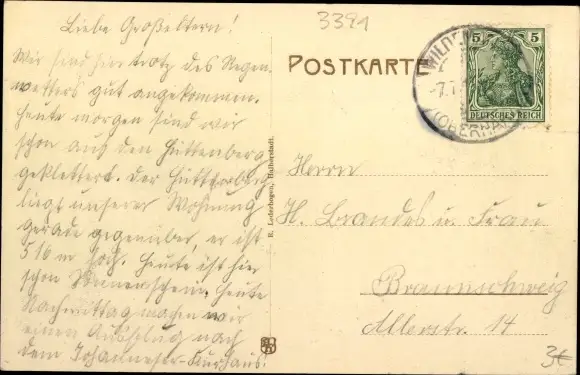 3391
Liebe Großeltern!
Wir sind hier trotz des Regen-
wetters gut angekommen.
Heute morgen sind wir
schon auf den Hüttenberg
geklettert. Der Hüttenberg
liegt unserer Wohnung
gerade gegenüber, er ist
516 m hoch. Heute ist hier
schon Sonnenschein. Heute
Nachmittag machen wir
einen Ausflug nach
dem Johanneser-Kurhaus.
R. Lederbogen, Halberstadt.
POSTKARTE
5 5
DEUTSCHES REICH
WILDE
-7.7.
(OBERHA
Herrn
H. Brandes u. Frau
Braunschweig
Allerstr. 14
3€